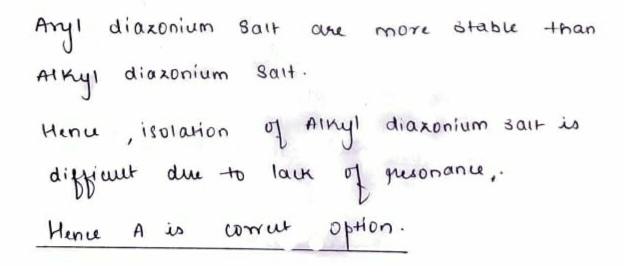 Aryl diazonium salt are more stable than
Alkyl diazonium salt.
Hence, isolation of Alkyl diazonium salt is
difficult due to lack of resonance,.
Hence A is correct option.